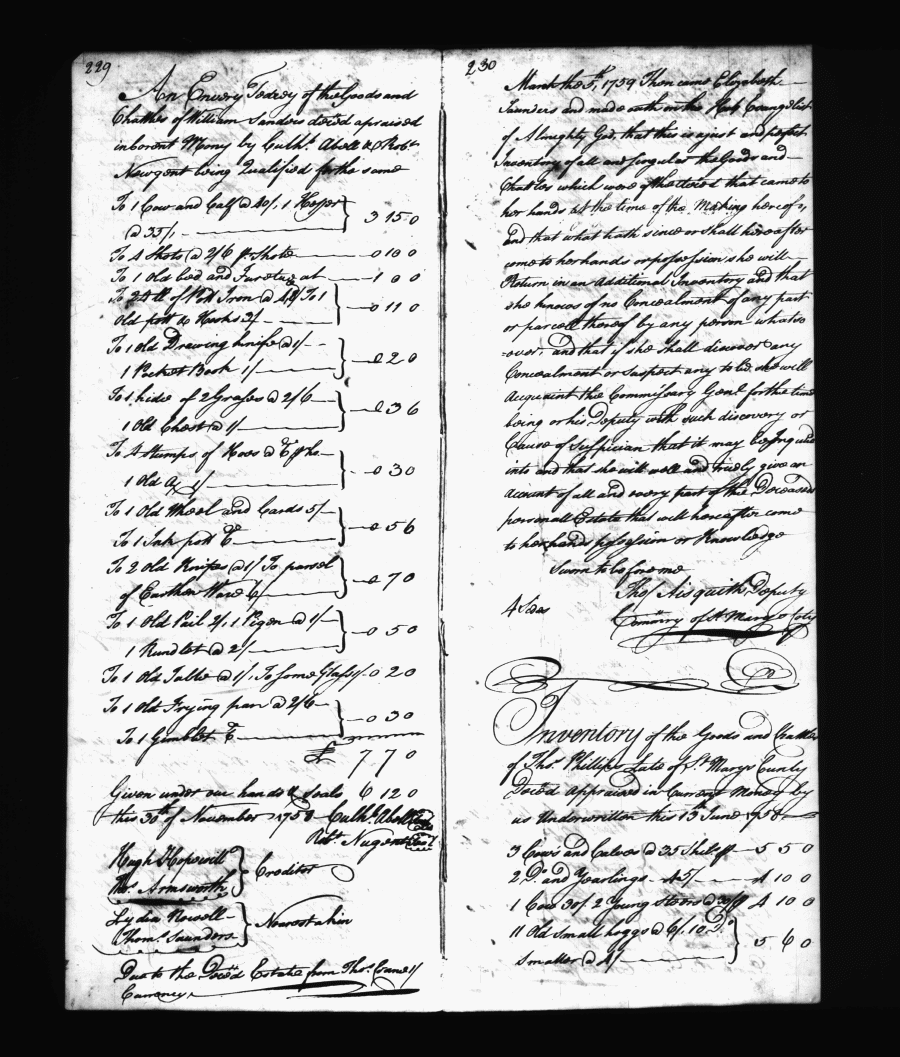 229
An Envery Tedrey of the Goods and
Chattles of William Sanders deced apraised
in Corent Mony by Cuthbt. Abell & Robt.
Newgent being Qualified for the same
To 1 Cow and Calf @ 40/, 1 Heyfer
@ 35/ } 3 15 0
To 4 Shots @ 2/6 pr. Shote 0 10 0
To 1 Old bed and Furetue at 1 0 0
To 24 lb of Pott Iron @ To 1
Old pott & Hooks 3/ } 0 11 0
To 1 Old Drawing knife @ 1/
1 Pocket Book 1/ } 0 2 0
To 1 hide of 2 @ 2/6
1 Old Chest @ 1/ } 0 3 6
To 4 Stumps of Hoes @
1 Old Ax 1/ } 0 3 0
To 1 Old Wheel and Cards 5/
To 1 Ink pott } 0 5 6
To 2 Old Knifes @ 1/ To parcel
of Earthen Ware 6/ } 0 7 0
To 1 Old Pail 2/, 1 Pigen @ 1/
1 Rundlet @ 2/ } 0 5 0
To 1 Old Table @ 1/. To some Glass 1/ 0 2 0
To 1 Old Frying pan @ 2/6
To 1 Gimblet } 0 3 0
£ 7 7 0
Given under our hands & Seals 6 12 0
this 30th of November 1758 Cuthbt Abell Seal
Robt. Nugent Seal
Hugh Hopewell
Thos. Armsworth } Creditor
Lydia Nowell
Thoms. Saunders } Nearest a kin
Due to the Deced Estate from Thos. Crane 1/
Currency
230
March the 5th, 1759 Then came Elizabeth
Saunders and made oath on the Holy Evangelist
of Almighty God, that this is a just and perfect
Inventory of all and singular the Goods and
Chattles which were of the deced that came to
her hands at the time of the Making hereof,
and that what hath since or shall hereafter
come to her hands or possession she will
Return in an Additional Inventory and that
she knows of no Concealment of any part
or parcell thereof by any person whatso
=ever, and that if she shall discover any
Concealment or suspect any to be she will
Acquaint the Commissary Genl. for the time
being or his Deputy with such discovery or
Cause of Suspician that it may be Inquired
into and that she will well and truly give an
account of all and every part of the Deceaseds
personall Estate that will hereafter come
to her hands possession or Knowledge
Sworn to before me
Thos Aisquith Deputy
4 Sides
Commry of St Marys Coty
Inventory of the Goods and Chattles
of Thos. Phillips Late of St Marys County
Deced Appraised in Current Money by
us Underwritten this 13 June 1758
3 Cows and Calves @ 35 Shills pr 5 5 0
2 Do. and Yearlings 45/ 4 10 0
1 Cow 30/. 2 Young Steers @ 30/ 4 10 0
11 Old Small hoggs @ 6/. 10 Do.
Smaller @ 4/ } 5 6 0